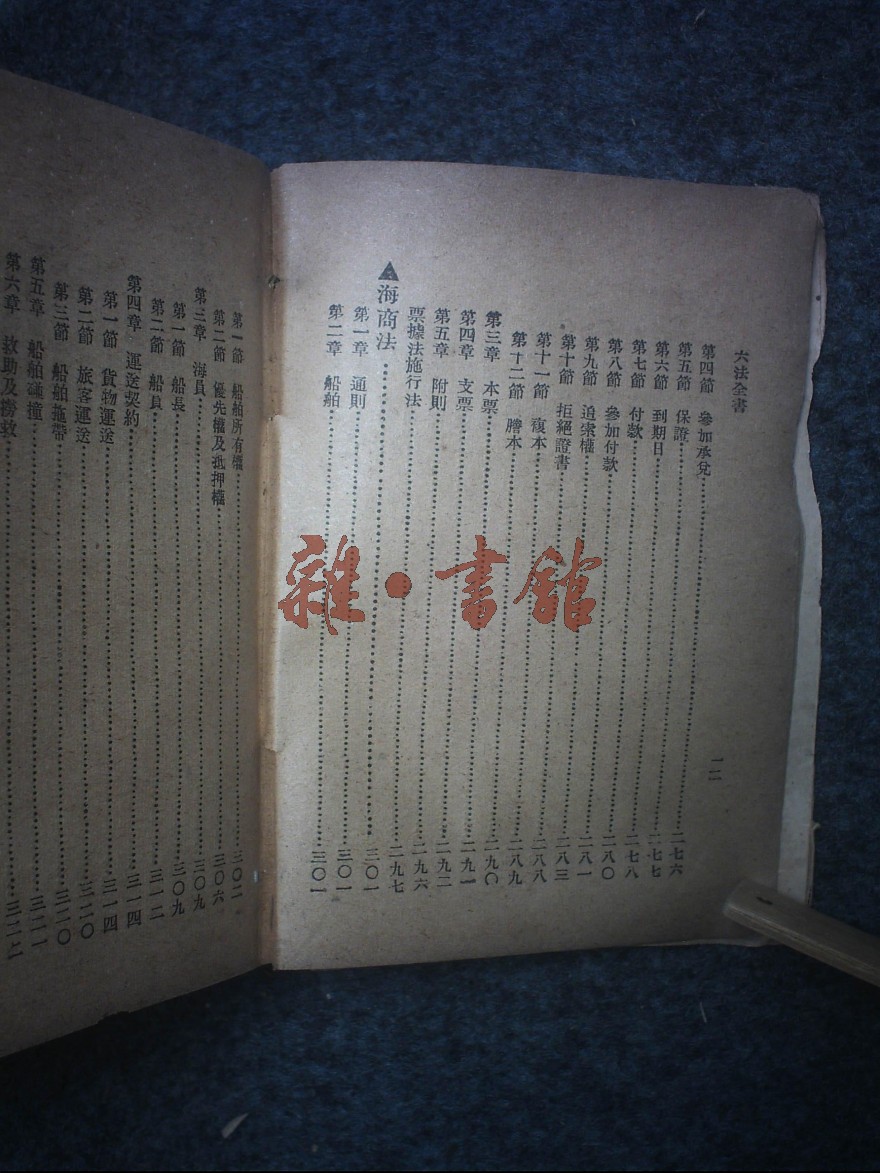 六法全書 一二
第四節 參加承兌…………二七六
第五節 保證…………二七七
第六節 到期日…………二七八
第七節 付款…………二八〇
第八節 參加付款…………二八一
第九節 追索權…………二八三
第十節 拒絕證書…………二八八
第十一節 複本…………二八九
第十二節 謄本…………二九〇
第三章 本票…………二九一
第四章 支票…………二九二
第五章 附則…………二九六
票據法施行法…………二九七
▲海商法…………三〇一
第一章 通則…………三〇一
第二章 船舶…………三〇一
第一節 船舶所有權…………三〇二
第二節 優先權及抵押權…………三〇六
第三章 海員…………三〇九
第一節 船長…………三〇九
第二節 船員…………三一二
第四章 運送契約…………三一四
第一節 貨物運送…………三一四
第二節 旅客運送…………三二〇
第三節 船舶拖帶…………三二〇
第五章 船舶碰撞…………三二一
第六章 救助及撈救…………三二二
雜·書館